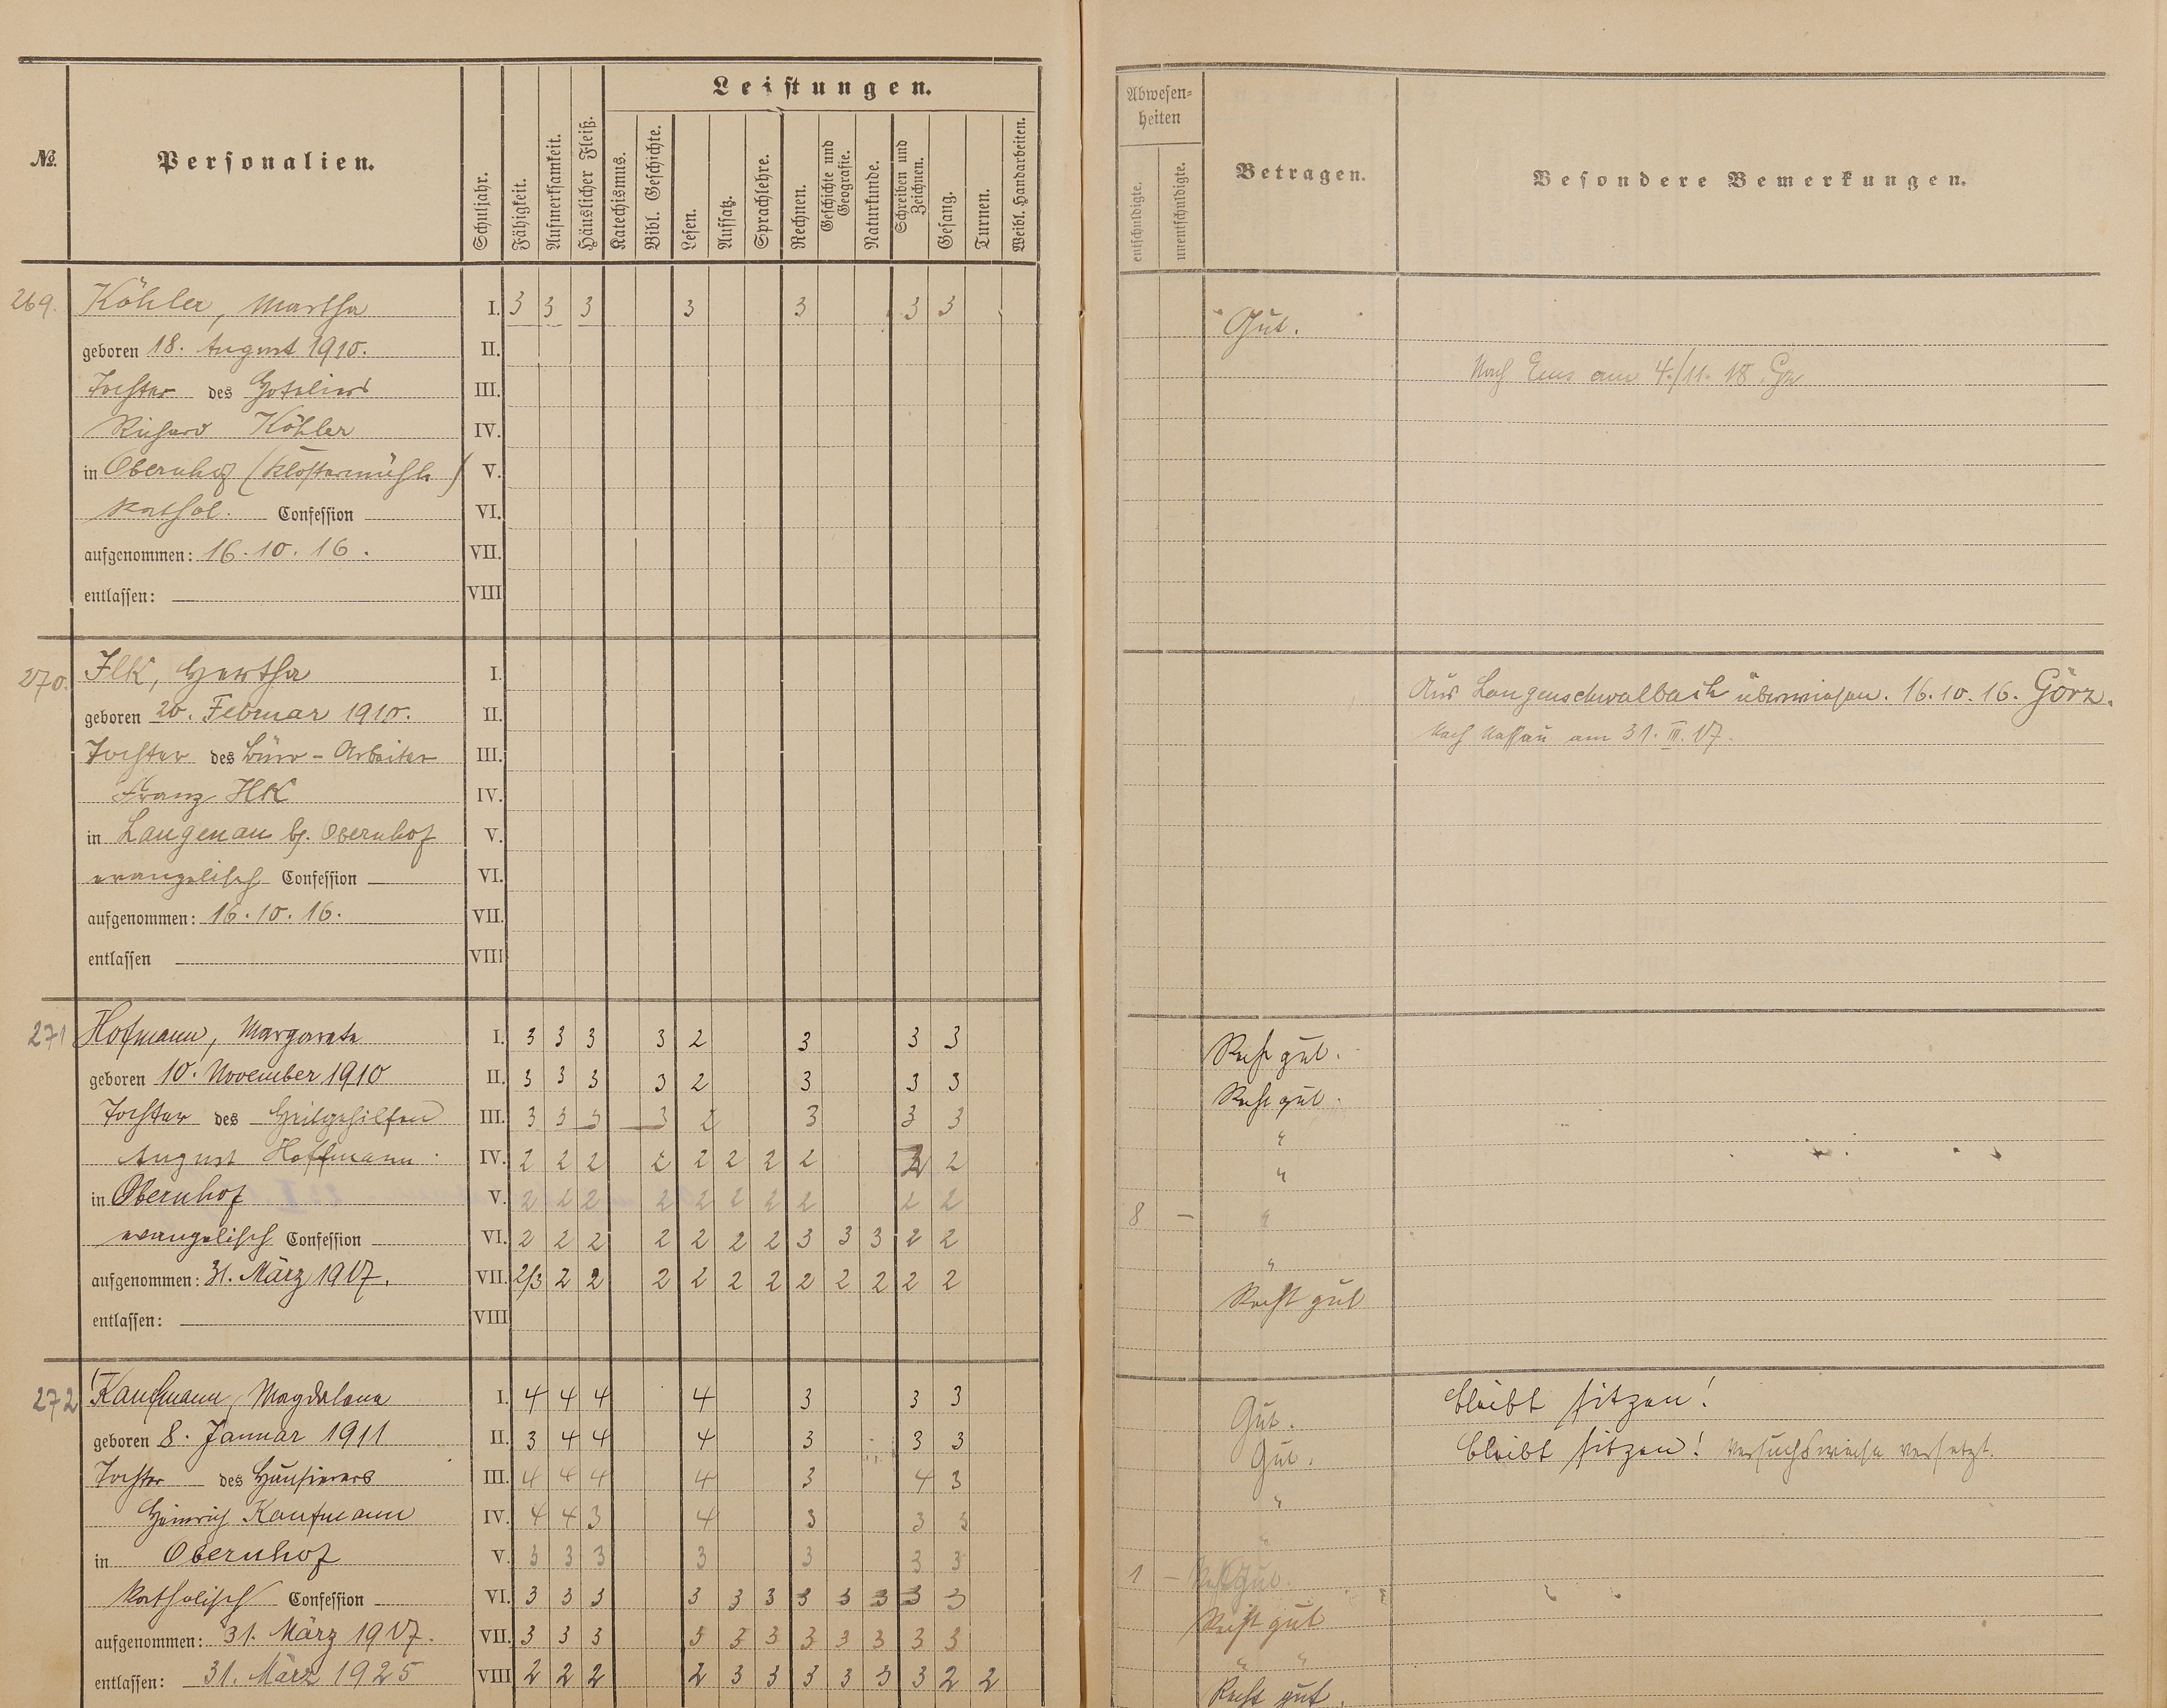 Leistungen.
№.
Personalien.
Schuljahr.
Fähigkeit.
Aufmerksamkeit.
Häuslicher Fleiß.
Katechismus.
Bibl. Geschichte.
Lesen.
Aufsatz.
Sprachlehre.
Rechnen.
Geschichte und Geografie.
Naturkunde.
Schreiben und Zeichnen.
Gesang.
Turnen.
Weibl. Handarbeiten.
Abwesen-
heiten
entschuldigte.
unentschuldigte.
Betragen.
Besondere Bemerkungen.
269. Köhler, Martha I. 3 3 3 3 3 3 3 Gut.
geboren 18. August 1910. II.
Tochter des III. Nach Ems am 4./11. 18.
Richard Köhler IV.
in Obernhof (Klostermühle) V.
Kathol. Confession VI.
aufgenommen: 16.10.16. VII.
entlassen: VIII
270. Ilk, Hertha I. Aus Langenschwalbach überwiesen. 16.10.16. Görz.
geboren 20. Februar 1910. II. Nach Nassau am 31. III. 17.
Tochter des Büro-Arbeiter III.
Franz Ilk IV.
in Langenau b/. Obernhof V.
evangelisch Confession VI.
aufgenommen: 16.10.16. VII.
entlassen VIII
271 Hofmann, Margarete I. 3 3 3 3 2 3 3 3 Recht gut.
geboren 10. November 1910 II. 3 3 3 3 2 3 3 3 Recht gut.
Tochter des Heilgehilfen III. 3 3 3 3 2 3 3 3 "
August Hoffmann IV. 2 2 2 2 2 2 2 2 2 2 "
in Obernhof V. 2 2 2 2 2 2 2 2 2 2 8 – "
evangelisch Confession VI. 2 2 2 2 2 2 2 3 3 3 2 2 "
aufgenommen: 31. März 1917. VII. 2/3 2 2 2 2 2 2 2 2 2 2 2 Recht gut
entlassen: VIII
272 Kaufmann, Magdalena I. 4 4 4 4 3 3 3 Gut. bleibt sitzen!
geboren 8. Januar 1911 II. 3 4 4 4 3 3 3 Gut. bleibt sitzen! Versuchsweise versetzt.
Tochter des Hausierers III. 4 4 4 4 3 4 3 "
Heinrich Kaufmann IV. 4 4 3 4 3 3 3 "
in Obernhof V. 3 3 3 3 3 3 3 1 – Recht gut.
katholisch Confession VI. 3 3 3 3 3 3 3 3 3 3 3 Recht gut
aufgenommen: 31. März 1917. VII. 3 3 3 3 3 3 3 3 3 3 3 " "
entlassen: 31. März 1925 VIII 2 2 2 2 3 3 3 3 3 3 2 2 Recht gut.